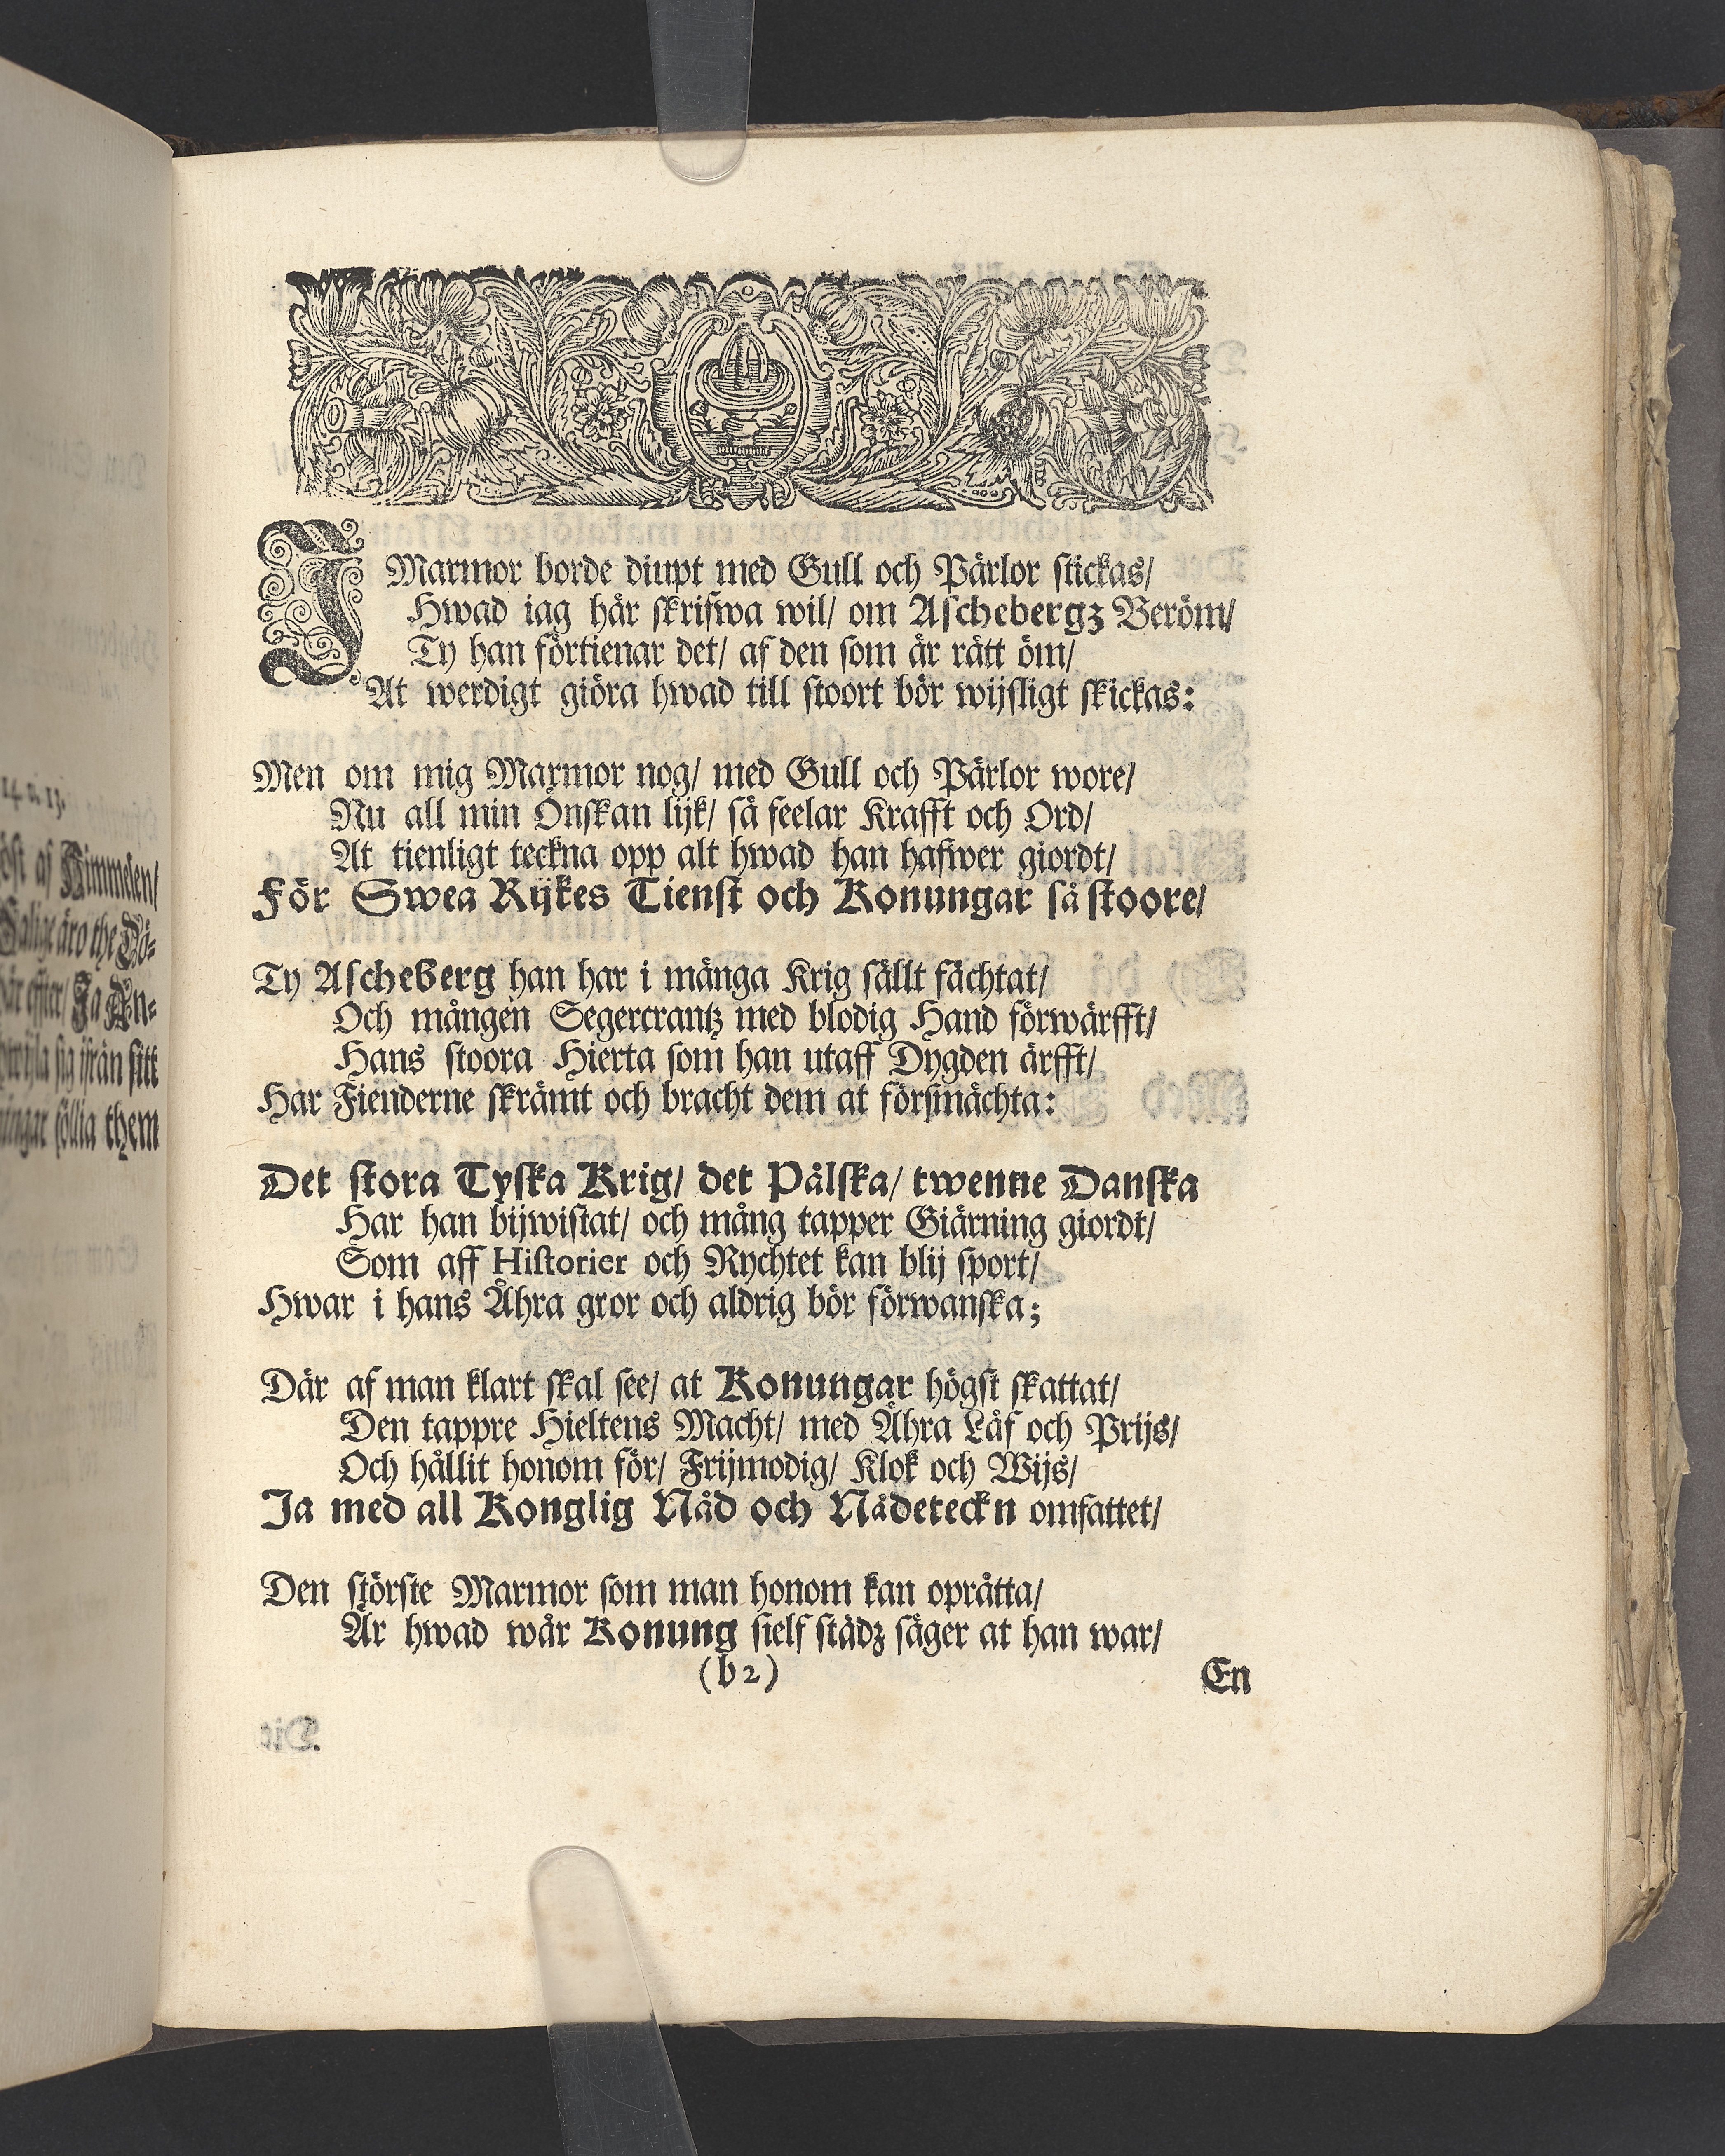 14. v. 13.
Himmelen/
Salige äro the Dö-
effter/ Ja An-
sig ifrån sitt
föllia them
I Marmor borde diupt med Gull och Pärlor stickas/
Hwad iag här skrifwa wil/ om Aschebergz Beröm/
Ty han förtienar det/ af den som är rätt öm/
At werdigt giöra hwad till stoort bör wijsligt skickas:
Men om mig Marmor nog/ med Gull och Pärlor wore/
Nu all min Önskan lijk/ så feelar Krafft och Ord/
At tienligt teckna opp alt hwad han hafwer giordt/
För Swea Rijkes Tienst och Konungar så stoore/
Ty Ascheberg han har i många Krig sällt fächtat/
Och mången Segercrantz med blodig Hand förwärfft/
Hans stoora Hierta som han utaff Dygden ärfft/
Har Fienderne skrämt och bracht dem at försmächta:
Det stora Tyska Krig/ det Pålska/ twenne Danska
Har han bijwistat/ och mång tapper Giärning giordt/
Som aff Historier och Rychtet kan blij sport/
Hwar i hans Ähra gror och aldrig bör förwanska;
Där af man klart skal see/ at Konungar högst skattat/
Den tappre Hieltens Macht/ med Ähra Låf och Prijs/
Och hållit honom för/ Frijmodig/ Klok och Wijs/
Ja med all Konglig Nåd och Nådeteckn omfattet/
Den störste Marmor som man honom kan oprätta/
Är hwad wår Konung sielf städz säger at han war/
(b2)
En